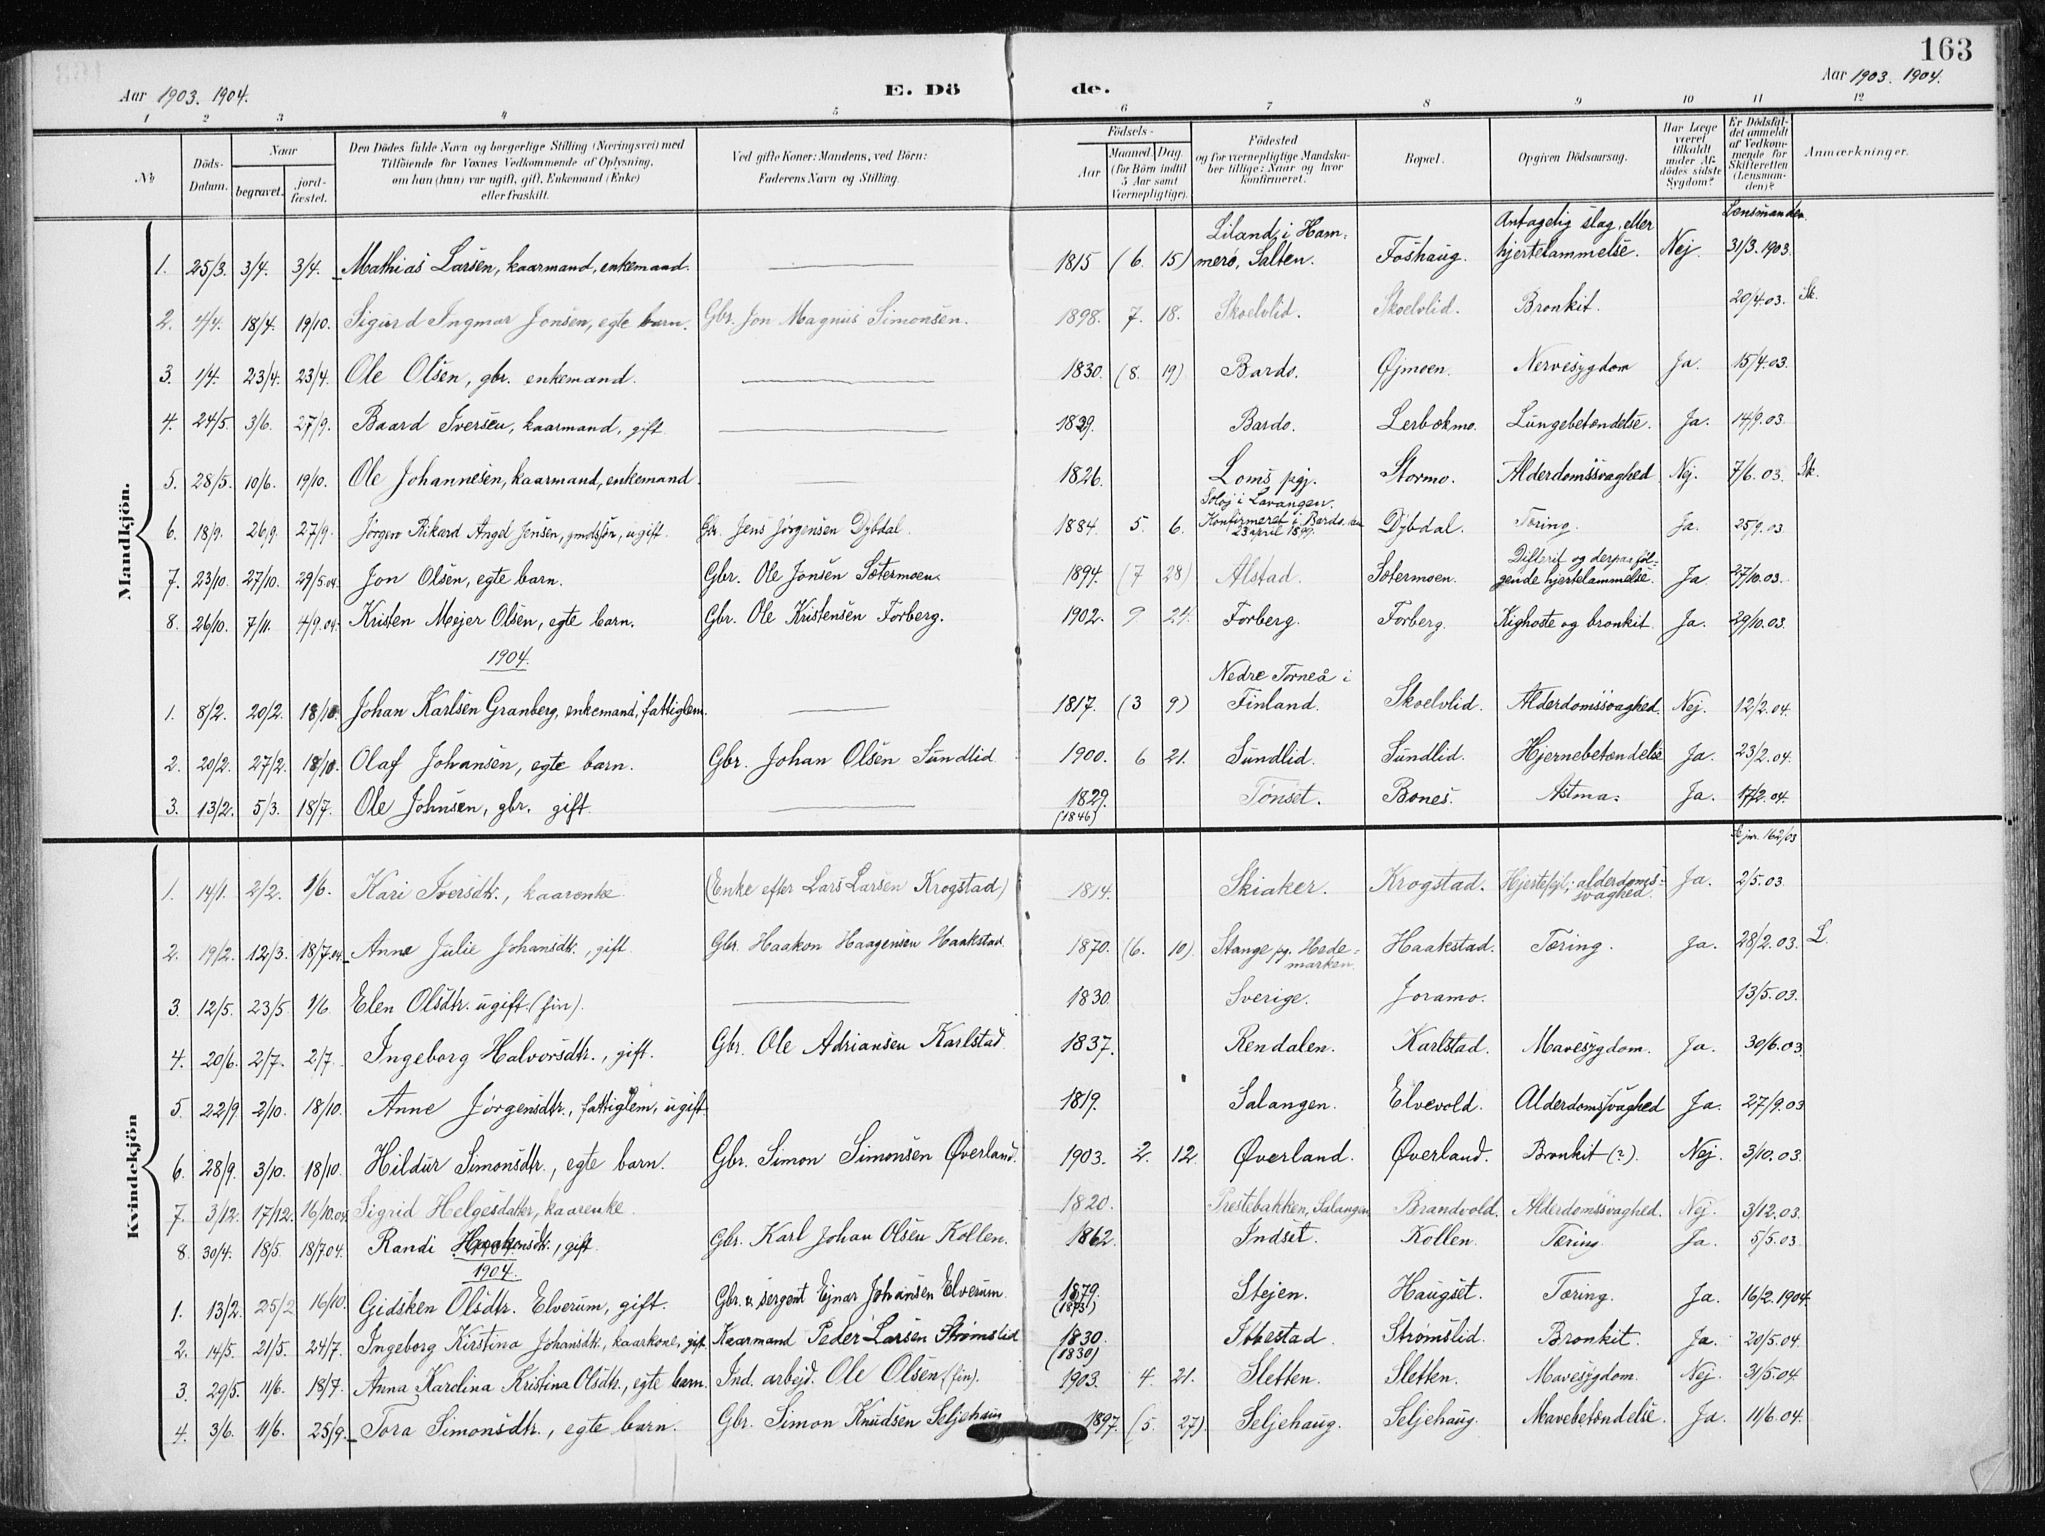 163
Aar 1903. 1904.
E. Dö de.
Aar 1903. 1904.
1 2 3 4 5 6 7 8 9 10 11 12
No
Döds-Datum.
Naar
begravet.
jord-fæstet.
Den Dödes fulde Navn og borgerlige Stilling (Næringsvei) med
Tilföiende for Voxnes Vedkommende af Oplysning,
om han (hun) var ugift, gift, Enkemand (Enke)
eller fraskilt.
Ved gifte Koner: Mandens, ved Börn:
Faderens Navn og Stilling.
Födsels-
Aar
Maaned. Dag.
(for Börn indtil
5 Aar samt
Værnepligtige).
Födested
og for værnepligtige Mandska-
ber tillige: Naar og hvor
konfirmeret.
Bopæl.
Opgiven Dödsaarsag.
Har Læge
været
tilkaldt
under Af-
dödes sidste
Sygdom?
Er Dödsfal-
det anmeldt
af Vedkom-
mende for
Skifteretten
(Lensman-
den)?
Anmærkninger.
Mandkjön.
1. 25/3. 3/4. 3/4. Mathias Larsen, kaarmand, enkemand. 1815 (6. 15) Liland i Ham-merø, Salten. Foshaug. Antagelig slag, eller hjertelammelse. Nej. Lensmanden 31/3. 1903.
2. 4/4. 18/4. 19/10. Sigurd Ingmar Jonsen, egte barn. Gbr. Jon Magnus Simonsen. 1898. 7. 18. Skoelvlid. Skoelvlid. Bronkit. 20/4.03. Sk.
3. 1/4. 23/4. 23/4. Ole Olsen, gbr. enkemand. 1830. (8. 19) Bardo. Øjmoen. Nervesygdom Ja. 15/4.03.
4. 24/5. 3/6. 27/9. Baard Iversen, kaarmand, gift. 1829. Bardo. Lerbekmo. Lungebetændelse. Ja. 14/9.03
5. 28/5. 10/6. 19/10. Ole Johannesen, kaarmand, enkemand. 1826. Loms pgj. Stormo. Alderdomssvaghed Nej. 7/6.03. Sk.
6. 18/9. 26/9. 27/9. Jørgen Rikard Angel Jensen, gmdssøn, ugift. Gbr. Jens Jørgensen Dybdal. 1884 5. 6. Soløj i Lavangen. Konfirmeret i Bardo den 23 april 1899. Dybdal. Tæring. Ja. 25/9.03
7. 23/10. 27/10. 29/5.04. Jon Olsen, egte barn. Gbr. Ole Jonsen Sætermoen. 1894. (7 28) Alstad. Sætermoen. Difterit og derpaa föl-gende hjertelammelse. Ja 27/10.03.
8. 26/10. 7/11. 4/9.04. Kristen Mejer Olsen, egte barn. Gbr. Ole Kristensen Forberg. 1902. 9 24. Forberg. Forberg. Kighoste og bronkit. Ja. 29/10.03.
1904.
1. 8/2. 20/2. 18/10. Johan Karlsen Granberg, enkemand, fattiglem. 1817. (3 9) Nedre Torneå i Finland. Skoelvlid. Alderdomssvaghed. Nej. 12/2.04.
2. 20/2. 27/2. 18/10. Olaf Johansen, egte barn. Gbr. Johan Olsen Sundlid. 1900. 6 21. Sundlid. Sundlid. Hjernebetændelse Ja. 23/2.04.
3. 13/2. 5/3. 18/7. Ole Johnsen, gbr. gift. 1829. (1846) Tönset. Bones. Astma. Ja. 17/2.04.
Kvindekjön
1. 14/1. 2/2. 1/6. Kari Iversdtr., kaarenke. (Enke efter Lars Larsen Krogstad) 1814. Skiaker. Krogstad. Hjertefejl; alderdoms-svaghed. Ja. jnr. 162/03 2/5.03.
2. 19/2. 12/3. 18/7.04. Anne Julie Johansdtr., gift. Gbr. Haakon Haagensen Haakstad. 1870. (6. 10). Stange pg. Hede-marken. Haakstad. Tæring. Ja. 28/2.03. L.
3. 12/5. 23/5 1/6. Elen Olsdtr. ugift. (fin). 1830. Sverige. Joramo. 13/5.03.
4. 20/6. 2/7. 2/7. Ingeborg Halvorsdtr., gift. Gbr. Ole Adriansen Karlstad. 1837. Rendalen. Karlstad. Mavesygdom. Ja. 30/6.03.
5. 22/9 2/10. 18/10. Anne Jørgensdtr., fattiglem, ugift. 1819. Salangen. Elvevold. Alderdomssvaghed Ja. 27/9.03
6. 28/9. 3/10. 18/10. Hildur Simonsdtr., egte barn. Gbr. Simon Simonsen Øverland. 1903. 2. 12. Øverland. Øverland. Bronkit (?). Nej. 3/10.03.
7. 3/12. 17/12. 16/10.04. Sigrid Helgesdatter, kaarenke. 1820. Prestebakken, Salangen Brandvold. Alderdomssvaghed. Nej. 3/12.03.
8. 30/4. 18/5. 18/7.04. Randi Haakensdtr., gift. Gbr. Karl Johan Olsen Kollen. 1862. Indset. Kollen. Tæring. Ja. 5/5.03
1904.
1. 13/2. 25/2 16/10. Gidsken Olsdtr. Elverum, gift. Gbr. v. sergent Ejnar Johansen Elverum. 1879. (1873) Stejen. Haugset. Tæring. Ja. 16/2.1904.
2. 14/5. 21/5. 24/7. Ingeborg Kirstina Johansdtr., kaarkone, gift. Kaarmand Peder Larsen Strømslid 1830. (1830) Ibbestad. Strømslid. Bronkit. Ja. 20/5.04.
3. 29/5. 11/6. 18/7. Anna Karolina Kristina Olsdtr., egte barn. Ind. arbejd. Ole Olsen (fin). 1903. 4. 21. Sletten. Sletten. Mavesygdom. Nej. 31/5.04.
4. 3/6. 11/6. 25/9. Tora Simonsdtr., egte barn. Gbr. Simon Knudsen Seljehaug 1897. (5. 27). Seljehaug. Seljehaug. Mavebetændelse. Ja. 11/6.04.